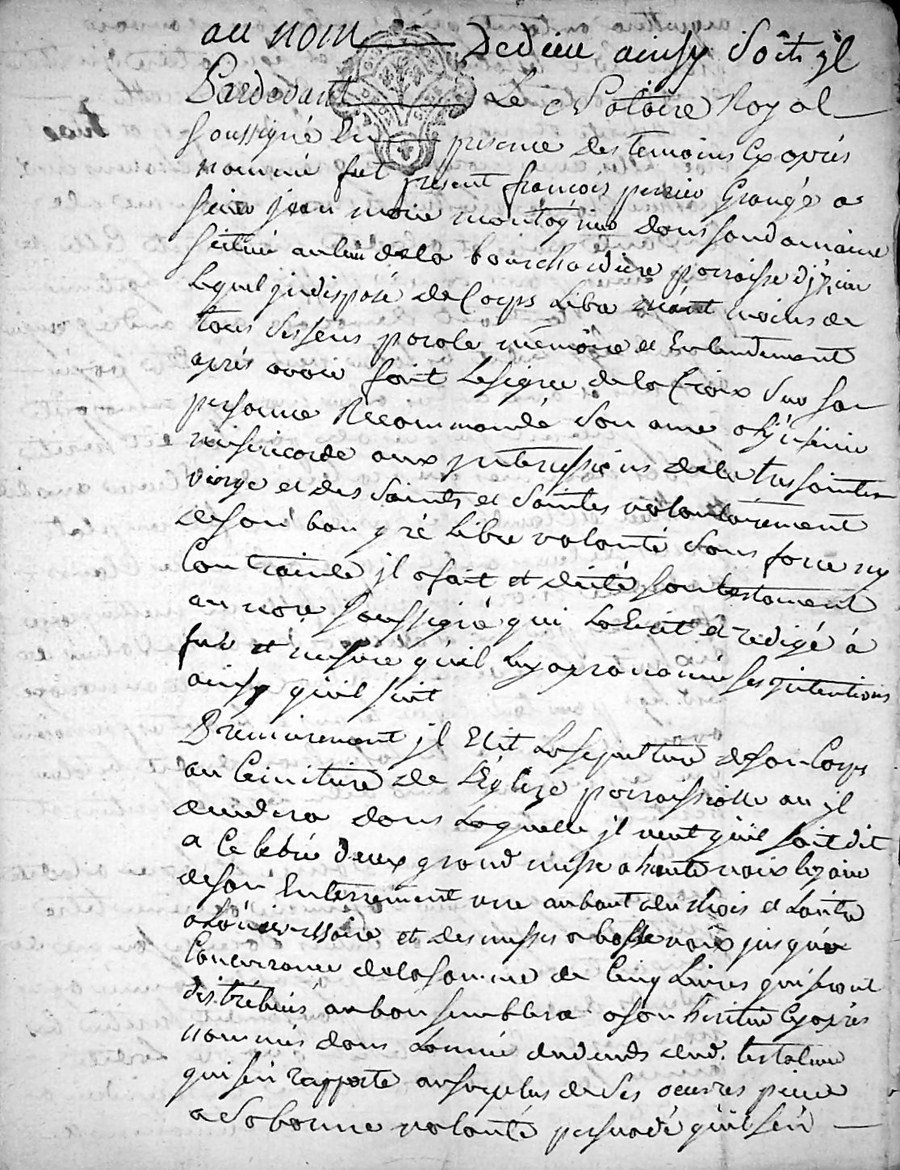 au nom De dieu ainsy Soit jl
Pardevant Le Notaire Royal
soussigné En presence des temoins Cyaprés
nommé fut present francois perrin Grangé a
sieur jean marie montagnie dans son domaine
scitué au lieu de la bourchardiere parroisse d'
Lequel jndisposé de Corps Libre neant moins de
tous ses sens parole memoire et Entendement
aprés avoir fait Le signe de la Croix sur sa
personne Recommandé son ame a
misericorde aux jntercessions de la tres sainte
vierge et des saints et saintes volontairement
de son bon gré Libre volonté sans force ny
Contrainte jl a fait et dicté son testament
au nore soussigné qui La Ecrit et redigé à
fur et mesure qu'il Luy a prononcé ses jntentions
ainsy qu'il suit
Premierement jl Elit La sepulture de son Corps
au Cimitiere de L'Eglise parroissialle ou jl
decedera dans Laquelle jl veut qu'il soit dit
et Celebré deux grand messe a haute voix Le jour
de son Enterrement une au bout du mois et L'autre
a et des messes a basse voix jusqu'a
Concurrance de la somme de Cinq Livres qui seront
distribués au bon semblera a son heritier Cyaprés
nommé dans L'année du deceds dud. testateur
qui s'en rapporte au surplus de ses oeuvres pieuse
a sa bonne volonté persuadé qu'il s'en